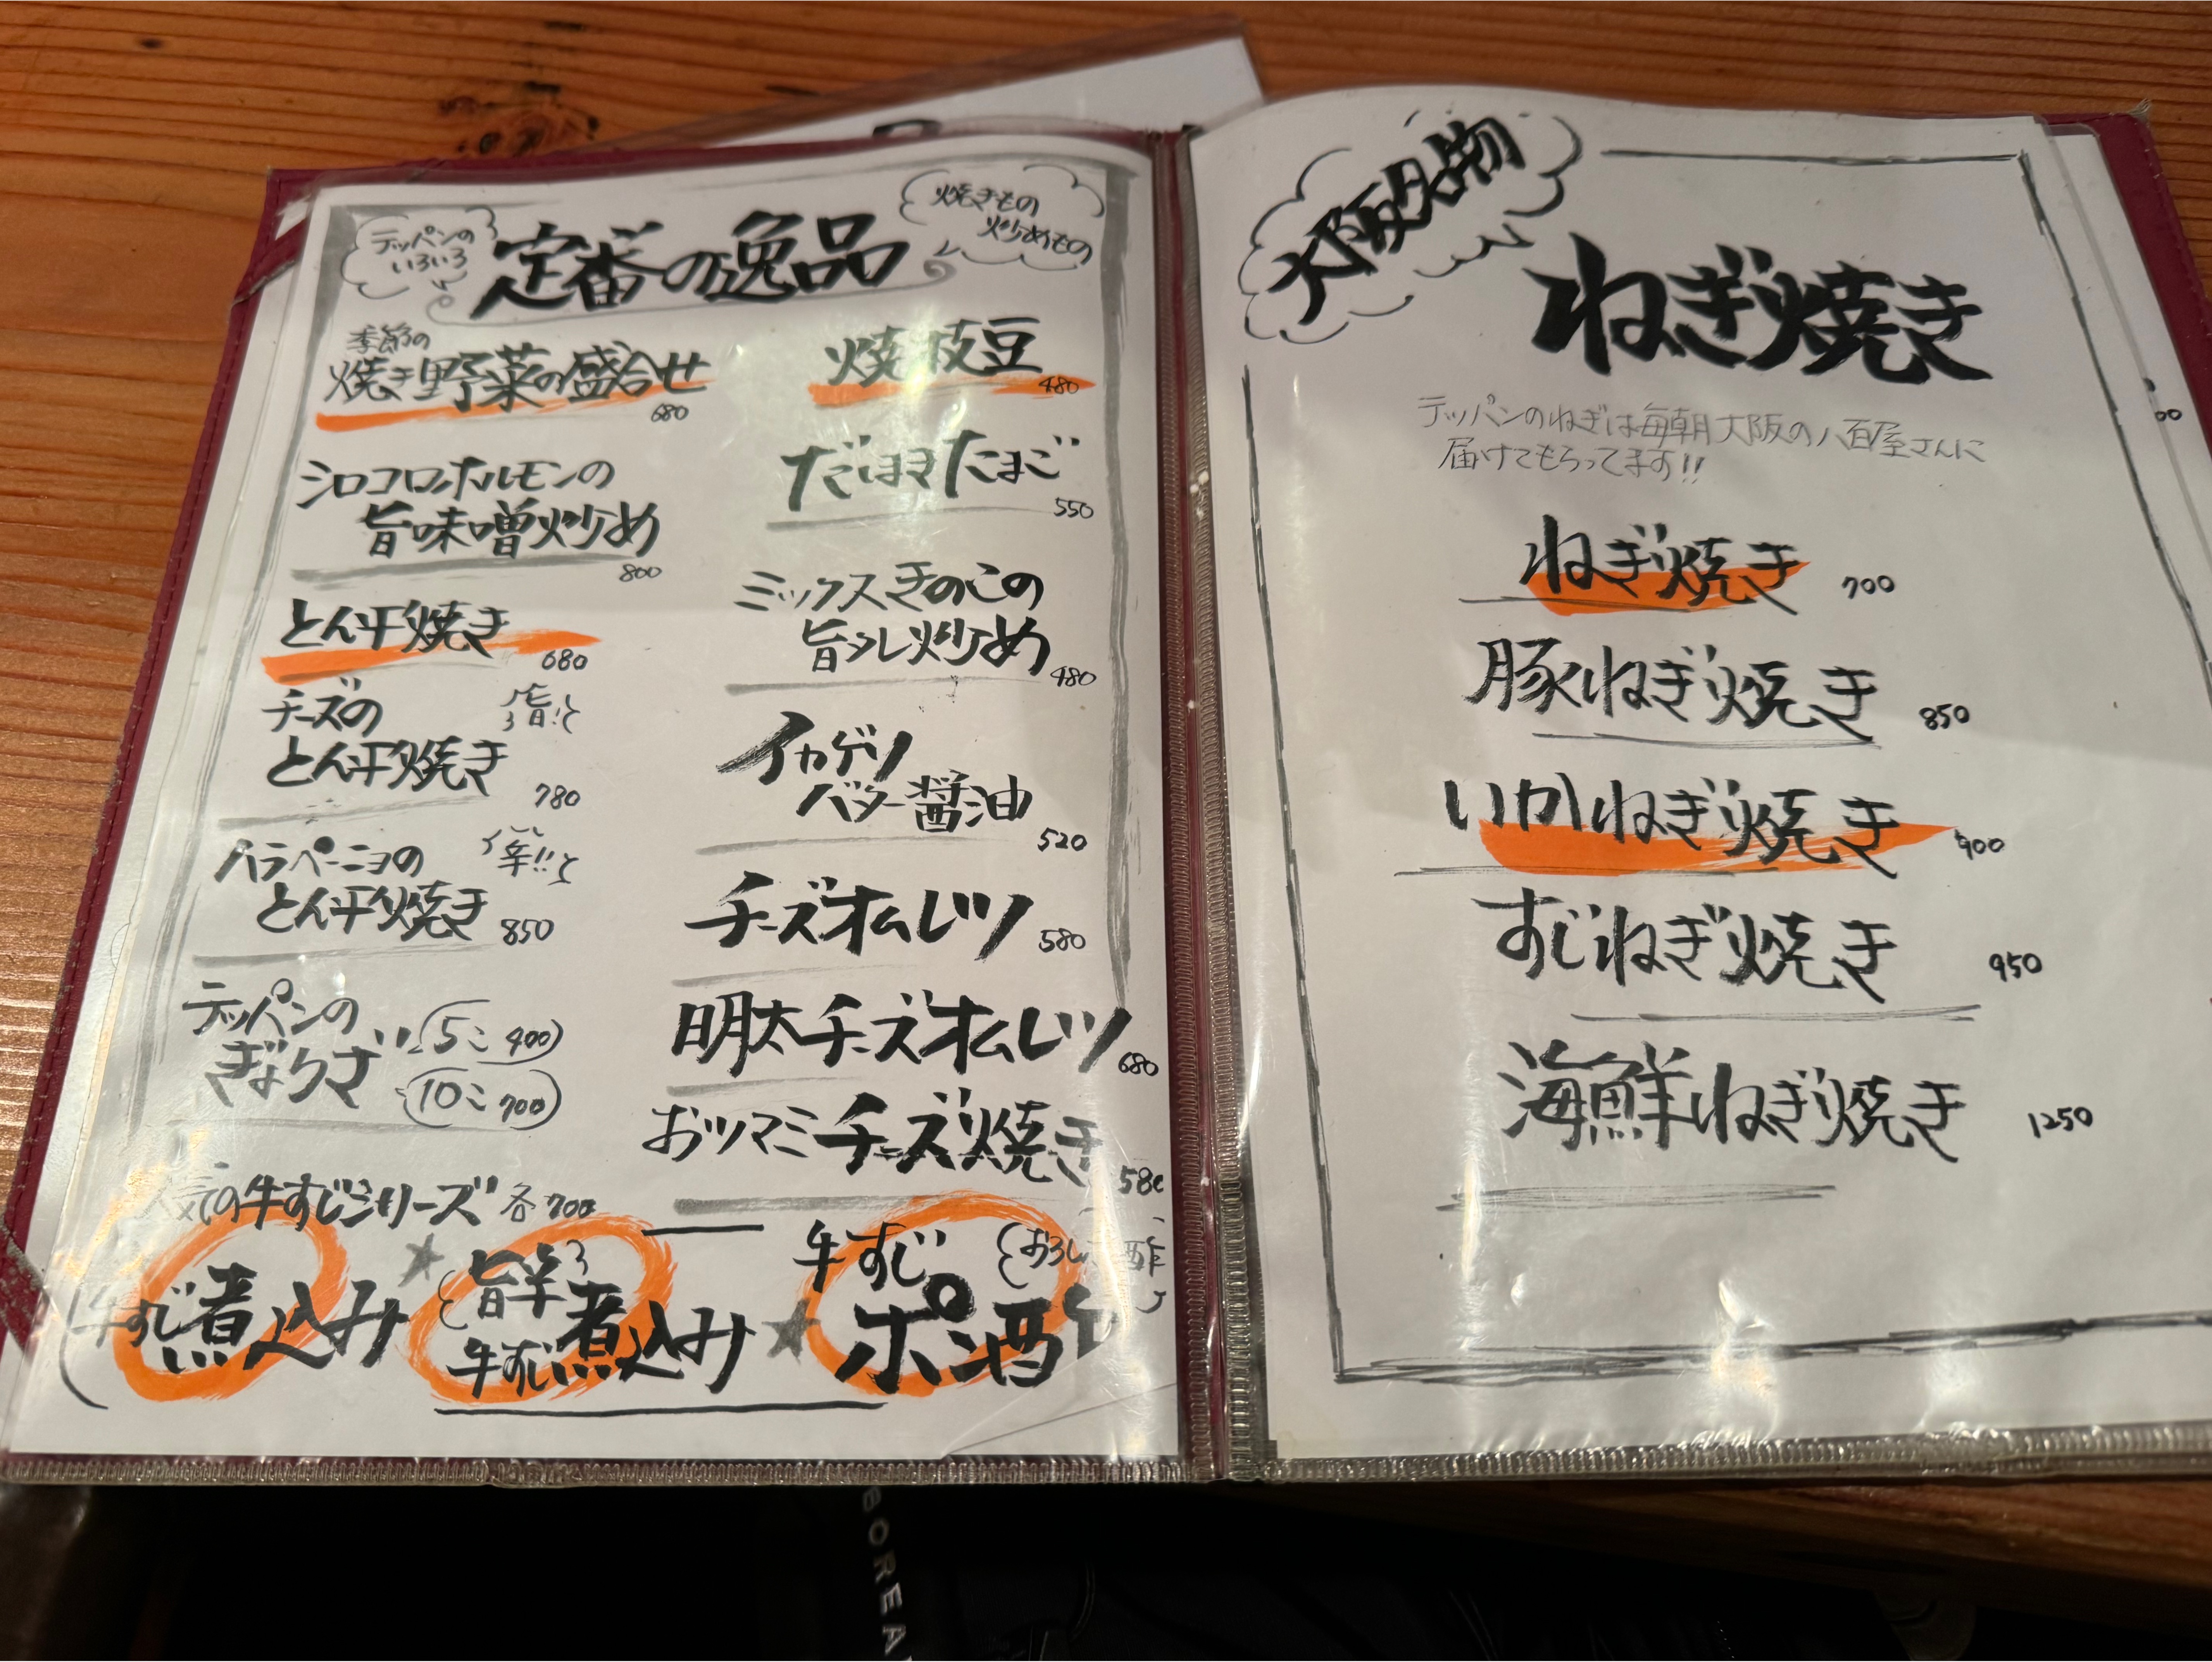 テッパンの
いろいろ
定番の逸品
焼きもの
炒めもの
季節の
焼き野菜の盛合せ
680
シロコロホルモンの
旨味噌炒め
800
とん平焼き
680
チーズの
旨!!
とん平焼き
780
ハラペーニョの
辛!!
とん平焼き 850
テッパンの
ぎょうざ
5こ 400
10こ 700
焼枝豆
480
だしまきたまご
550
ミックスきのこの
旨ダレ炒め
480
イカゲソ
バター醤油
520
チーズオムレツ 580
明太チーズオムレツ
680
おツマミチーズ焼き
580
人気の牛すじシリーズ 各700
牛すじ煮込み
旨辛
牛すじ煮込み
牛すじ
おろし
ポン酢
大阪名物
ねぎ焼き
テッパンのねぎは毎朝大阪の八百屋さんに
届けてもらってます!!
ねぎ焼き 700
豚ねぎ焼き 850
いかねぎ焼き 900
すじねぎ焼き 950
海鮮ねぎ焼き 1250